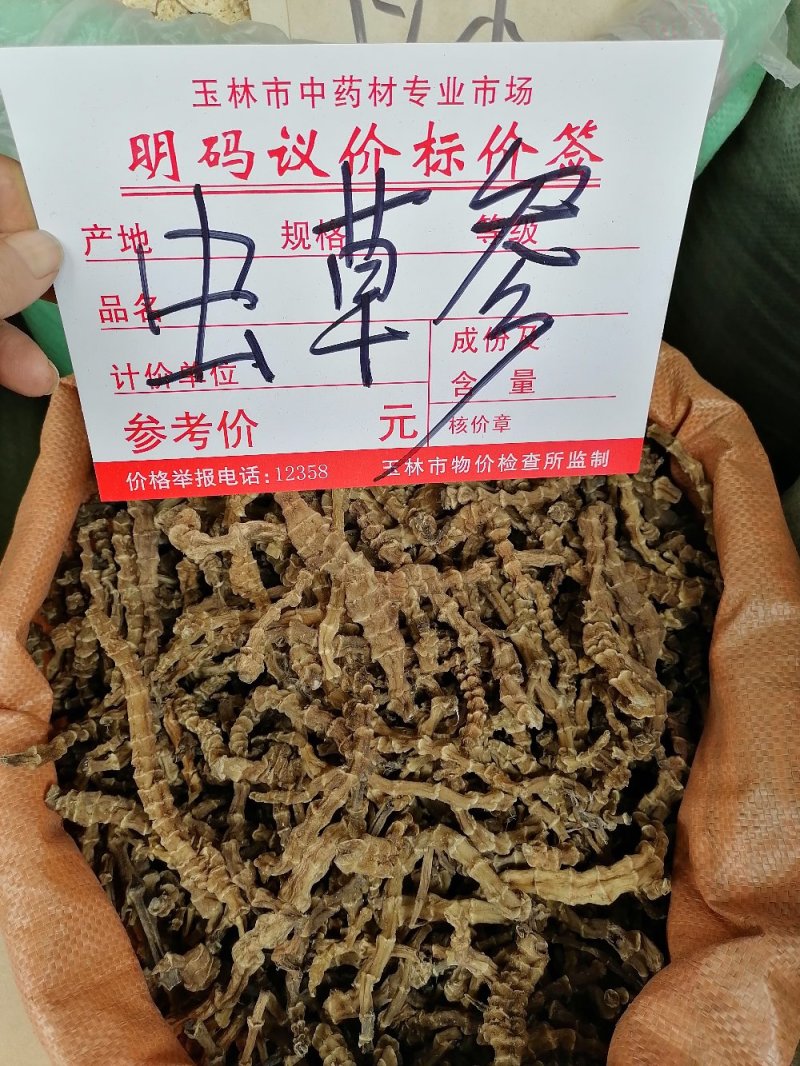 玉林市中药材专业市场
明码议价标价签
产地 规格 等级
虫草参
品名
成份及
含量
计价单位
参考价 元
核价章
价格举报电话:12358 玉林市物价检查所监制